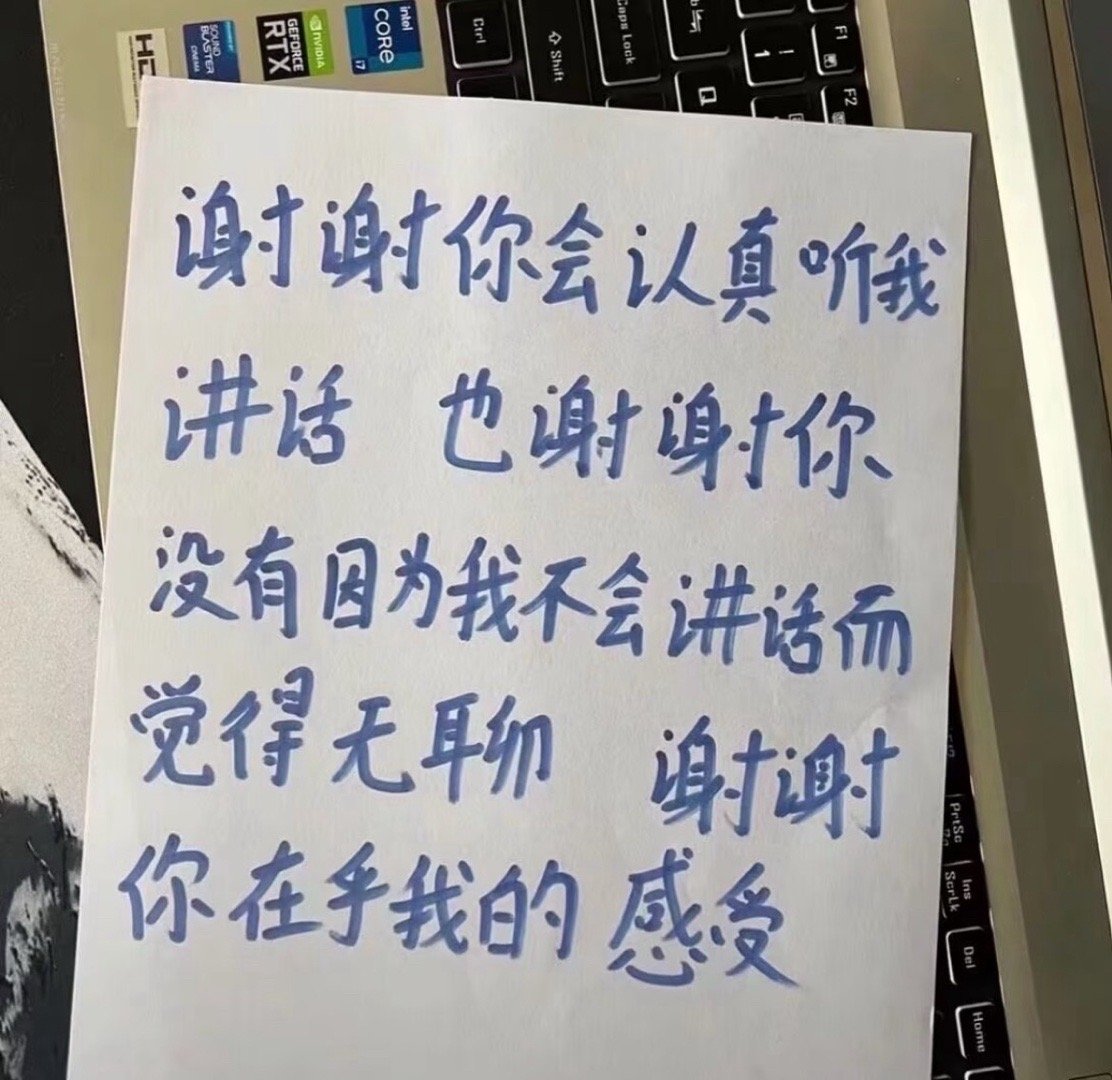 谢谢你会认真听我
讲话 也谢谢你
没有因为我不会讲话而
觉得无聊 谢谢
你在乎我的感受
intel
CORE
i7
nVIDIA
GEFORCE
RTX
SOUND
BLASTER
CINEMA
Ctrl
Shift
Caps Lock
Q
!
1
F1
F2
PrtSc
Ins
ScrLk
Del
Home